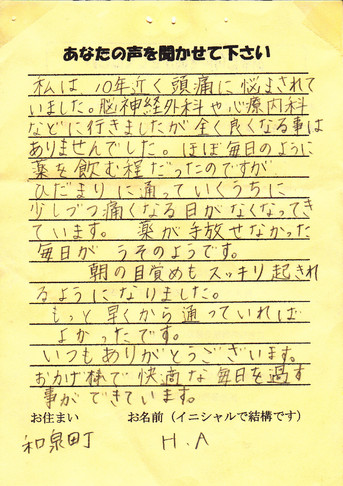 あなたの声を聞かせて下さい
私は 10年近く頭痛に悩まされて
いました。脳神経外科や心療内科
などに行きましたが全く良くなる事は
ありませんでした。ほぼ毎日のように
薬を飲む程だったのですが
ひだまりに通っていくうちに
少しづつ痛くなる日がなくなってき
ています。 薬が手放せなかった
毎日が うそのようです。
朝の目覚めもスッキリ起きれ
るようになりました。
もっと早くから通っていれば
よかったです。
いつもありがとうございます。
おかげ様で快適な毎日を過す
事ができています。
お住まい お名前（イニシャルで結構です）
和泉町 H.A